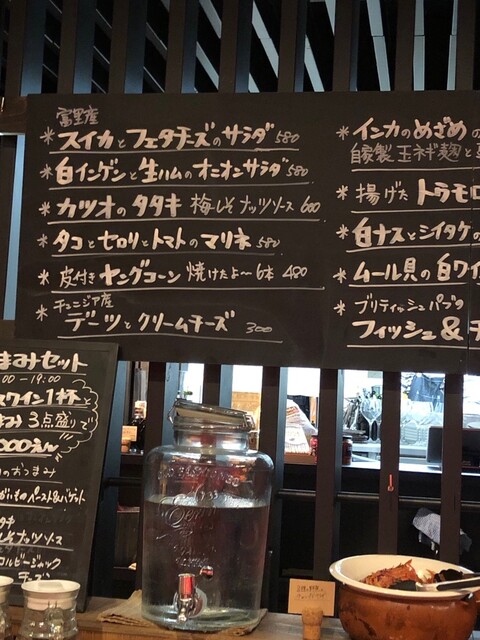 富里産
*スイカとフェタチーズのサラダ 580
*白インゲンと生ハムのオニオンサラダ 580
*カツオのタタキ 梅しそナッツソース 600
*タコとセロリとトマトのマリネ 580
*皮付きヤングコーン 焼けたよ〜6本 480
チュニジア産
*デーツとクリームチーズ 300
*インカのめざめの
自家製玉ネギ麹と
*揚げたトラモ
*白ナスとシイタケの
*ムール貝の白ワイ
*ブリティッシュパブの
フィッシュ&チ
まみセット
00-19:00
ワイン1杯と
まみ3点盛りで
000えん
のおつまみ
ペースト&バゲット
タキ
ナッツソース
コルビージャック
チーズ